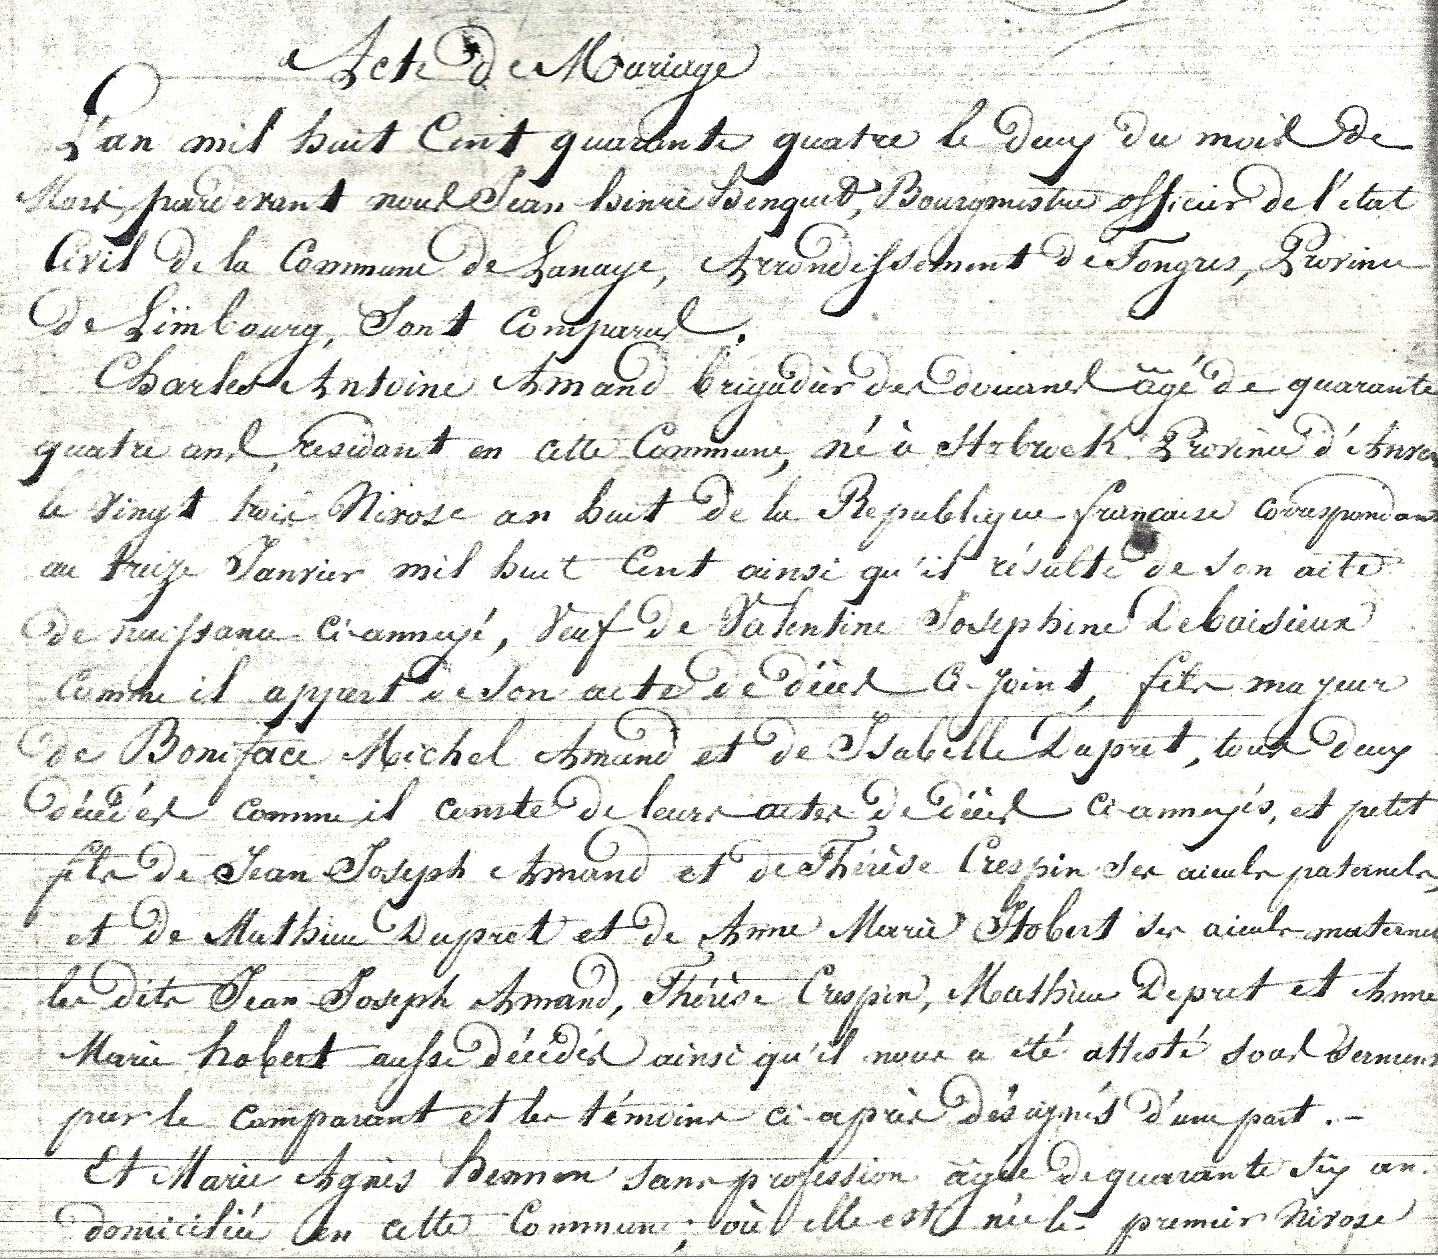 Acte de Mariage
L'an mil huit Cent quarante quatre le deux du mois de
Mars, pardevant nous Jean henri henquet, Bourgmestre officier de l'état
Civil de la Commune de Lanaye, Arrondissement de Tongres, Province
de Limbourg, Sont Comparus.
Charles Antoine Amand brigadier des douanes âgé de quarante
quatre ans, residant en cette Commune, né à Stabroek Province d'Anvers
le vingt trois Nivose an huit de la Republique française correspondant
au treize Janvier mil huit Cent ainsi qu'il résulte de son acte
de naissance ci-annexé, Veuf de Valentine Josephine Debaisieux
Comme il appert de son acte de décès Ci-joint, fils majeur
de Boniface Michel Amand et de Isabelle Dupret, tous deux
décédés comme il conste de leurs actes de décès ci-annexés, et petit
fils de Jean Joseph Amand et de Thérèse Crespin ses aieuls paternels,
et de Mathieu Dupret et de Anne Marie Hobert ses aieuls maternels
les dits Jean Joseph Amand, Thérèse Crespin, Mathieu Depret et Anne
Marie hobert aussi décédés ainsi qu'il nous a été attesté sous serment
par le comparant et les témoins ci-après désignés d'une part. -
Et Marie Agnès hennen sans profession âgée de quarante six an
domiciliée en cette Commune; où elle est née le premier Nivose